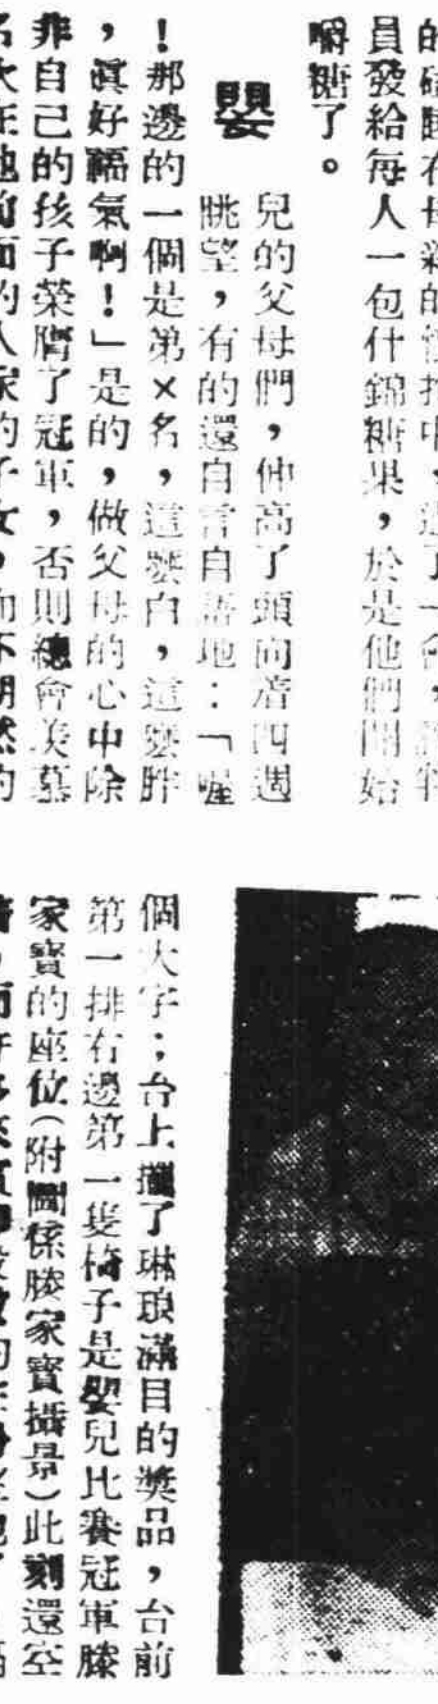 員發給每人一包什錦糖果，於是他們開始
嚼糖了。
嬰兒的父母們，伸高了頭向着四週
眺望，有的還自言自語地：「喔
！那邊的一個是第×名，這麼白，這麼胖
，眞好福氣啊！」是的，做父母的心中除
非自己的孩子榮膺了冠軍，否則總會羨慕
個大字；台上擺了琳琅滿目的獎品，台前
第一排右邊第一隻椅子是嬰兒比賽冠軍滕
家寶的座位（附圖係滕家寶攝景）此刻還空